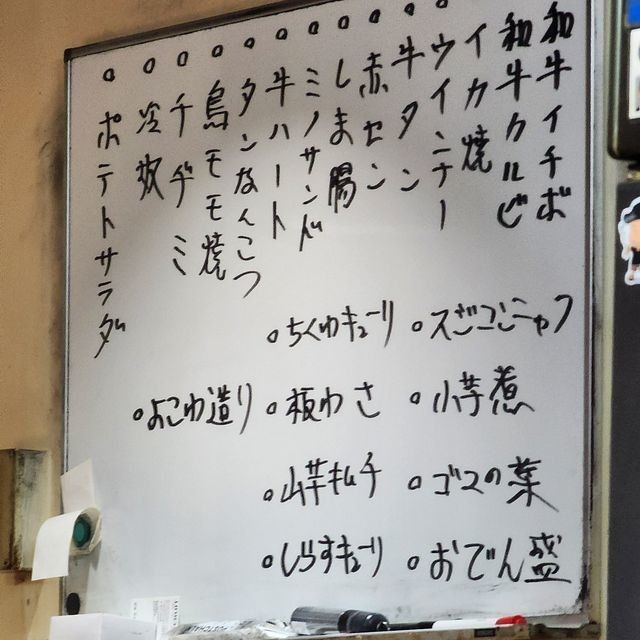 和牛イチボ
和牛カルビ
イカ焼
ウインナー
牛タン
赤セン
しま腸
ミノサンド
牛ハート
タンなんこつ
鳥モモ焼
チヂミ
冷奴
ポテトサラダ
ちくわキューリ
よこわ造り
板わさ
小芋煮
山芋キムチ
ゴマの葉
しらすキューリ
おでん盛